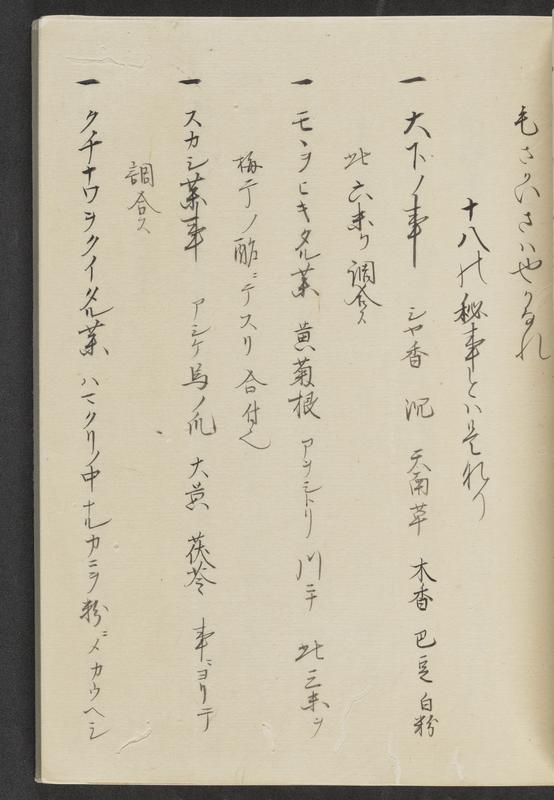 毛さりいさハやうなれ
十八の秘事とハ是れり
一 大下ノ事 シヤ香 沉 天南草 木香 巴豆 白粉
此六未ヲ調合ス
一 モヽヲヒキタル薬 黄菊根 アシミトリ 川ニテ 此三未ヲ
梅干ノ酢ニテスリ合付也
一 スカシ薬事 アシケ馬ノ爪 大黄 茯苓 事ニヨリテ
調合ス
一 クチナワヲクイタル薬 ハマクリノ中ナルカニヲ粉ニメカウヘシ